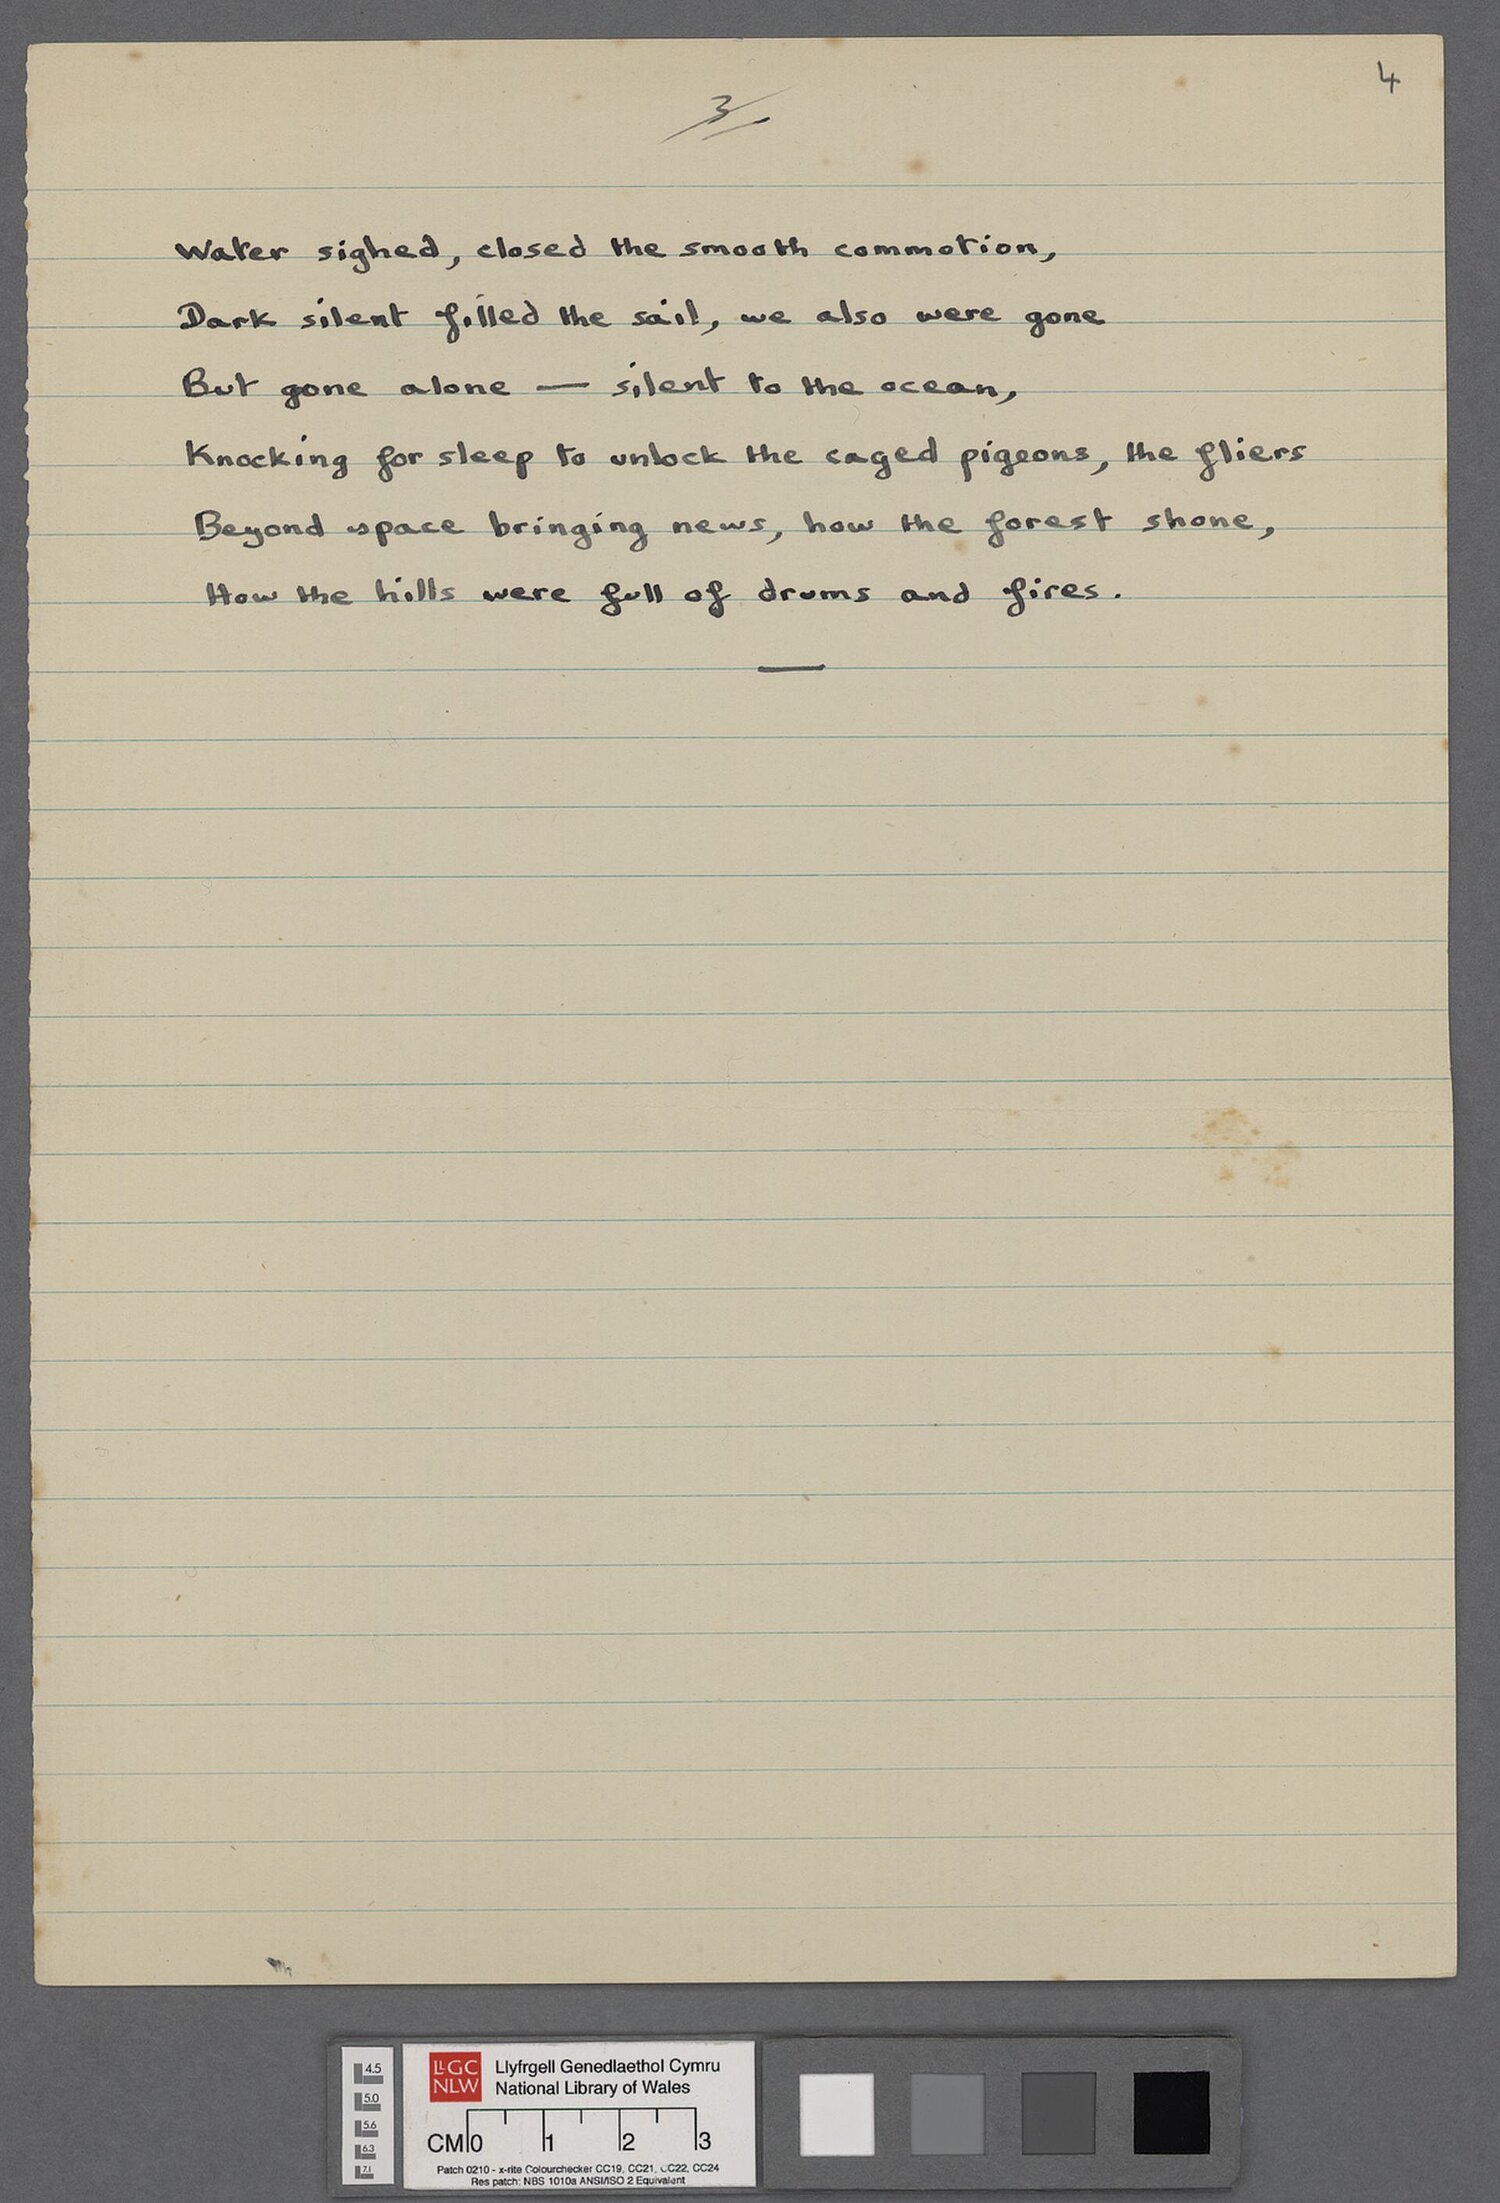 4
3
Water sighed, closed the smooth commotion,
Dark silent filled the sail, we also were gone
But gone alone — silent to the ocean,
Knocking for sleep to unlock the caged pigeons, the fliers
Beyond space bringing news, how the forest shone,
How the hills were full of drums and fires.
4.5
5.0
5.6
6.3
7.1
LLGC
NLW
Llyfrgell Genedlaethol Cymru
National Library of Wales
CM 0 1 2 3
Patch 0210 - x-rite Colourchecker CC19, CC21, CC22, CC24
Res patch: NBS 1010a ANSI/ISO 2 Equivalent